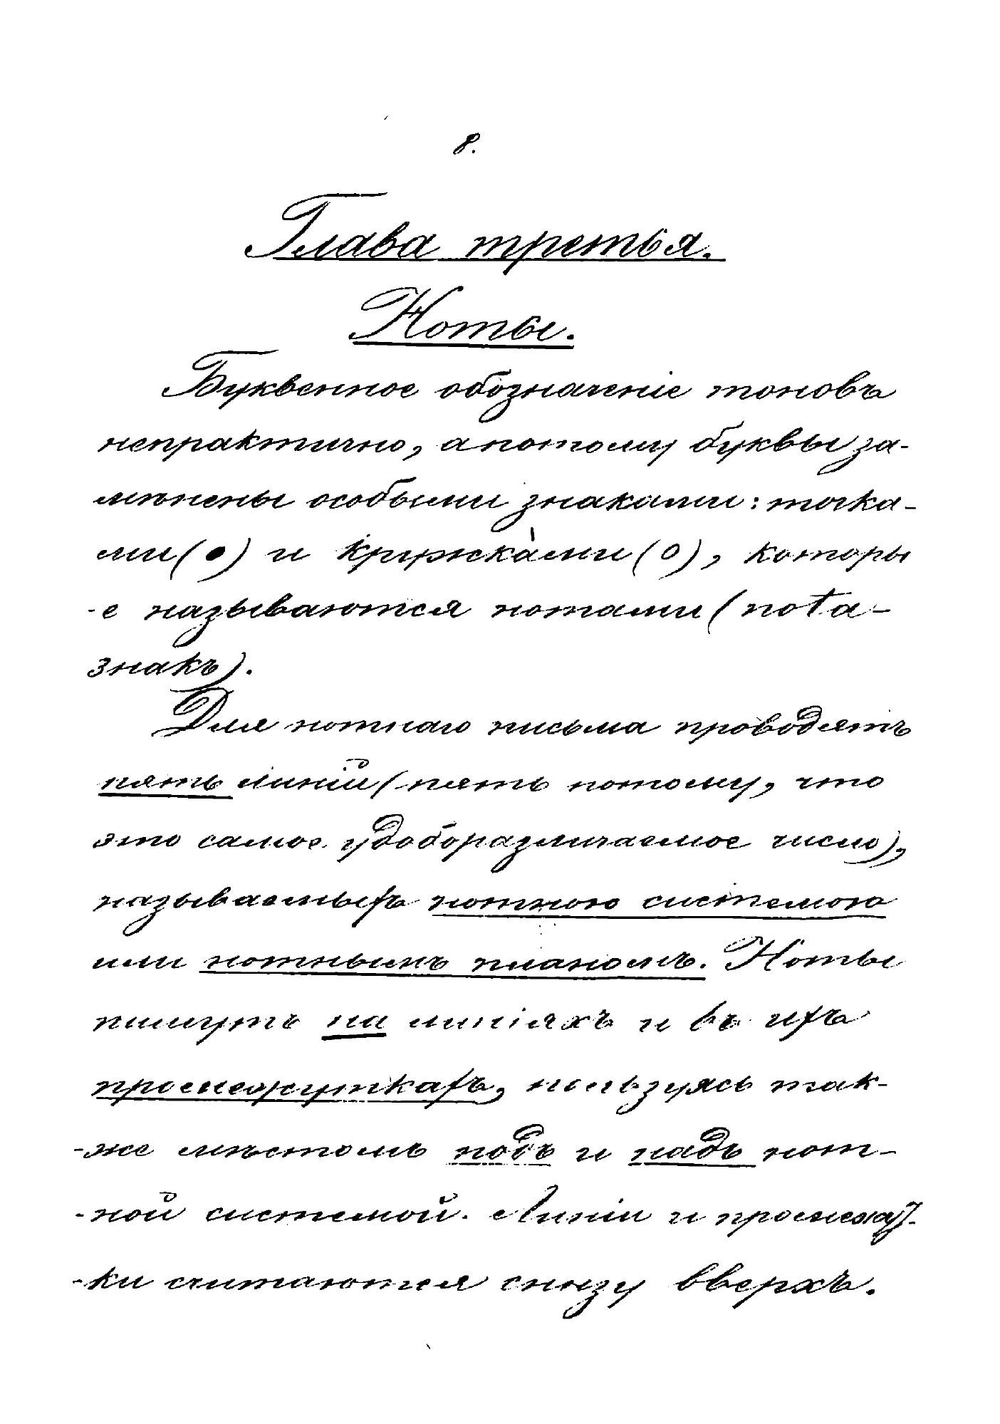 8.
Глава третья.
Ноты.
Буквенное обозначеніе тоновъ
непрактично, а потому буквы за-
мѣнены особыми знаками: точка-
ми (●) и кружка̀ми (о), которы
-е называются нотами (nota-
знакъ).
Для нотнаго письма проводятъ
пять линій (пять потому, что
это самое удоборазличаемое число),
называемыхъ нотною системою
или нотнымъ планомъ. Ноты
пишутъ на линіяхъ и въ ихъ
промежуткахъ, пользуясь так-
-же мѣстомъ подъ и надъ нот-
-ной системой. Линіи и промежут-
-ки считаются снизу вверхъ.